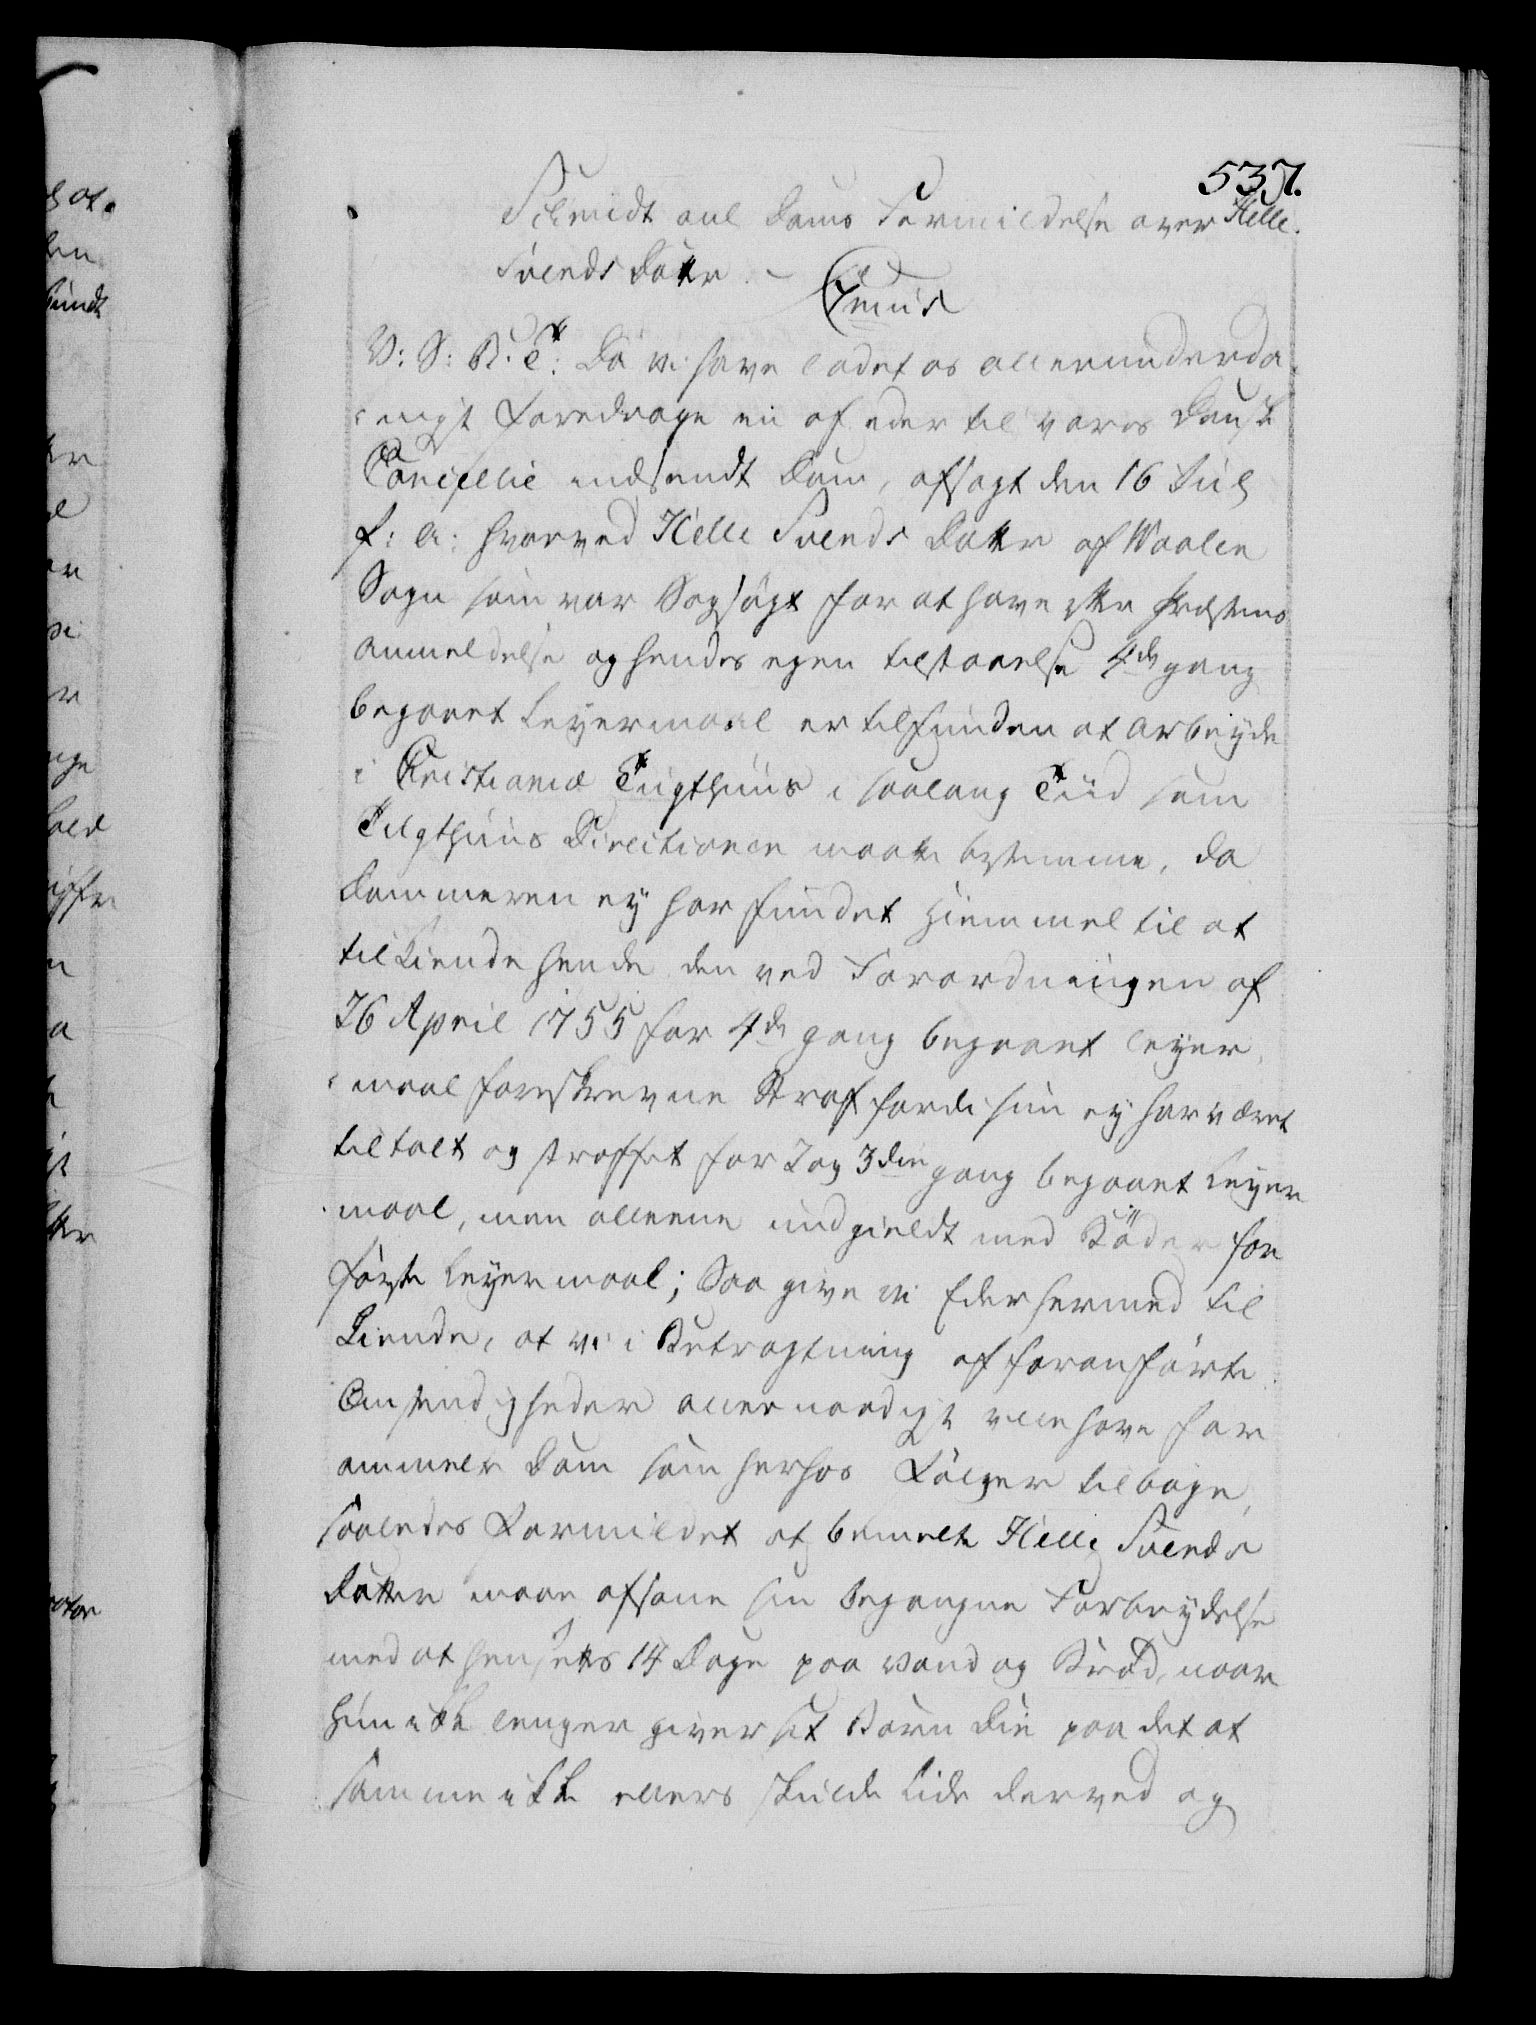 537.
Schmidt anl Doms Formildelse over Helle
Svends Datter. –
V: S: B: T: Da vi have ladet os allerunderda-
nigst foredrage en af eder til vores Danske
Cancellie indsendt Dom, afsagt den 16 Julj
f: a: hvorved Helle Svends Datter af Waaler
Sogn som var Sagsøgt for at have efter Præstens
anmeldelse og hendes egen tilstaaelse 4de gang
begaaet Leyermaal er tilfunden at arbeyde
i Christiania Tugthuus i saalang Tiid som
Tugthuus Directionen maatte bestemme, da
Dommeren ey har fundet Hiemmel til at
tilkiende hende den ved Forordningen af
26 April 1755 for 4de gang begaaet Leyer-
maal foreskrevne Straf fordi hun ey har været
tiltalt og straffet for 2 og 3die gang begaaet Leyer
maal, men alleene undgieldt med Bøder for
første Leyermaal; Saa give vi Eder hermed til
Kiende, at vi i Betragtning af foranførte
Omstændigheder allernaadigst ville have for
ommelte Dom som herhos følger tilbage,
saaledes formildet at bemelte Helle Svends
Datter maae afsone sin begangne Forbrydelse
med at hensættes 14 Dage paa Vand og Brød, naar
hun ikke lenger giver sit Barn Die paa det at
samme ikke ellers skulde lide derved og
at.
den
rotor